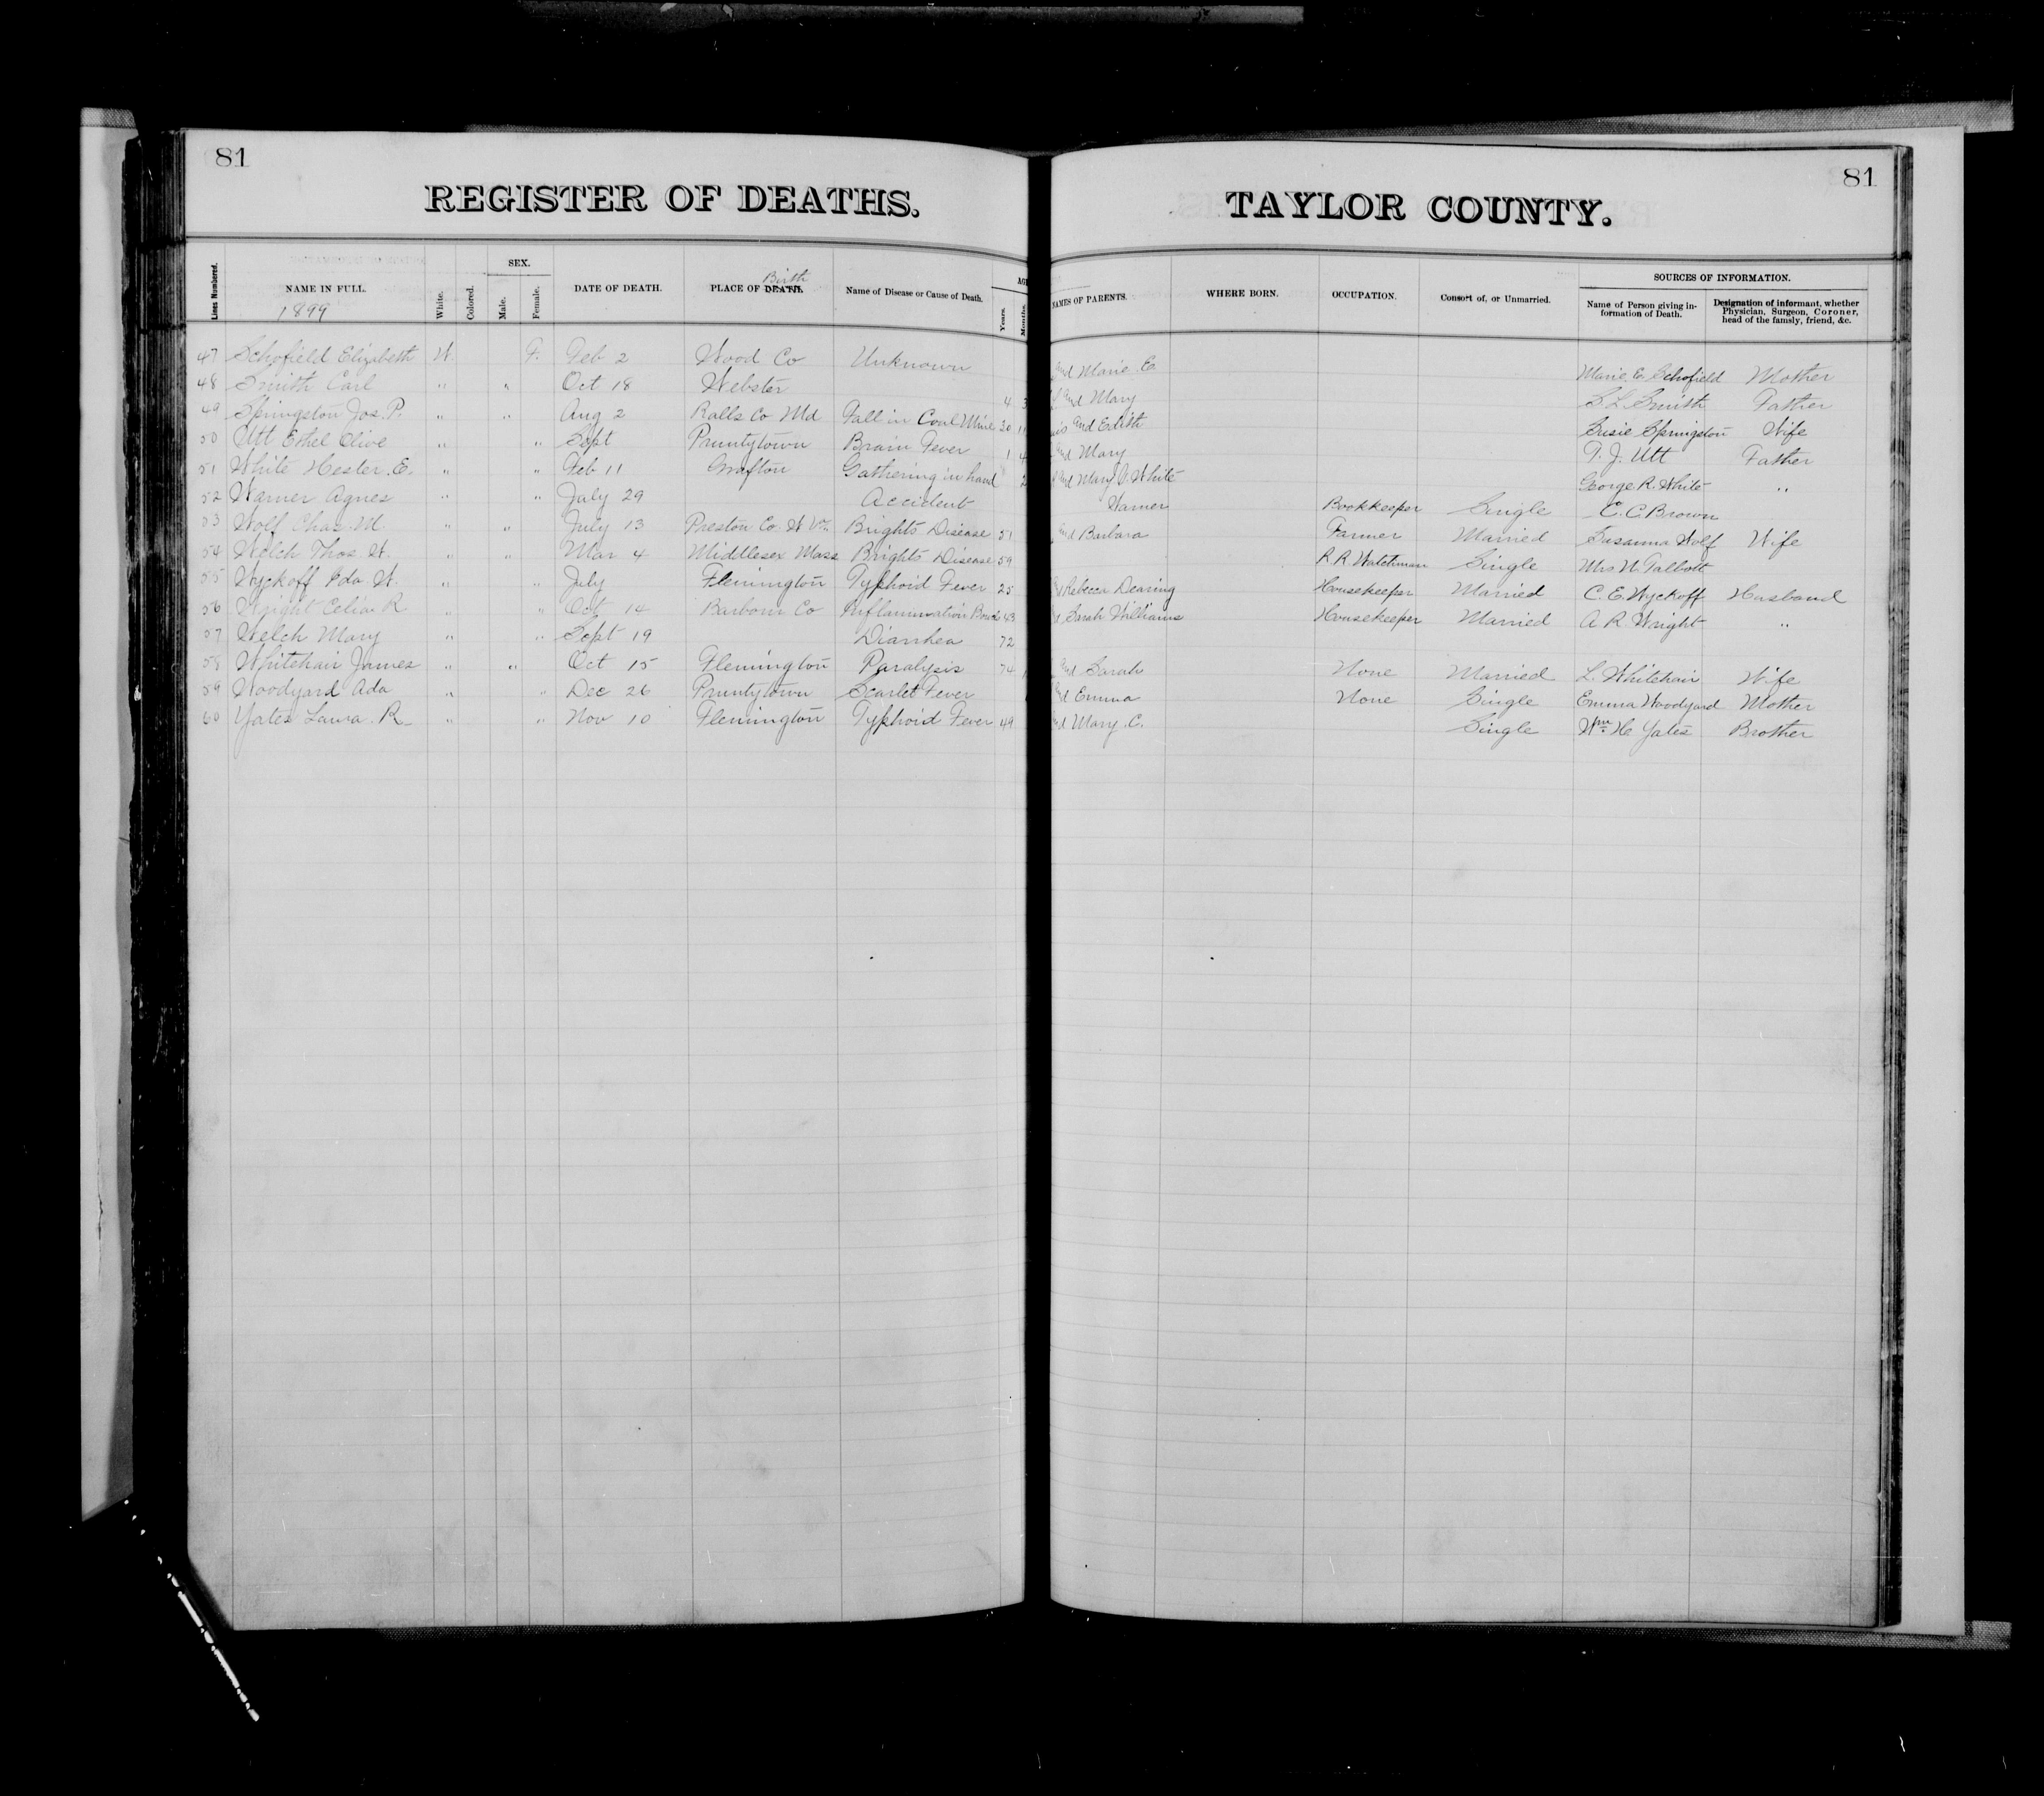 81
REGISTER OF DEATHS.
Lines Numbered.
NAME IN FULL.
1899
White.
Colored.
SEX.
Male.
Female.
DATE OF DEATH.
Birth
PLACE OF DEATH.
Name of Disease or Cause of Death.
Years.
Months.
47 Schofield Elizabeth W. F. Feb 2 Wood Co Unknown
48 Smith Earl " " Oct 18 Webster 4 3
49 Springston Jos. P. " " Aug 2 Ralls Co Md Fall in Coal Mine 30 11
50 Utt Ethel Olive " " Sept Pruntytown Brain Fever 1 4
51 White Hester. E. " " Feb 11 Grafton Gathering in hand 2
52 Warner Agnes " " July 29 Accident
53 Wolf Chas. M. " " July 13 Preston Co. W Va. Brights Disease 51
54 Welch Thos. W. " " Mar 4 Middlesex Mass Brights Disease 59
55 Wyckoff Ida. W. " " July Flemington Typhoid Fever 25
56 Wright Celia R " " Oct 14 Barbour Co Inflammation Bowels 43
57 Welch Mary " " Sept 19 Diarrhea 72
58 Whitehair James " " Oct 15 Flemington Paralysis 74
59 Woodyard Ada " " Dec 26 Pruntytown Scarlet Fever
60 Yates Laura. R. " " Nov 10 Flemington Typhoid Fever 49
81
TAYLOR COUNTY.
NAMES OF PARENTS.
WHERE BORN.
OCCUPATION.
Consort of, or Unmarried.
SOURCES OF INFORMATION.
Name of Person giving in-
formation of Death.
Designation of informant, whether
Physician, Surgeon, Coroner,
head of the famsly, friend, &c.
and Marie. E. Marie. E. Schofield Mother
and Mary S. L. Smith Father
and Edith Susie Springston Wife
and Mary T. J. Utt Father
and Mary White George. R. White "
Warner Bookkeeper Single C. C. Brown
and Barbara Farmer Married Susanna Wolf Wife
R. R. Watchman Single Mrs. N. Talbott
Rebecca Dearing Housekeeper Married C. E. Wyckoff Husband
Sarah Williams Housekeeper Married A. R. Wright "
and Sarah None Married L. Whitehair Wife
and Emma None Single Emma Woodyard Mother
and Mary. C. Single Wm. H. Yates Brother